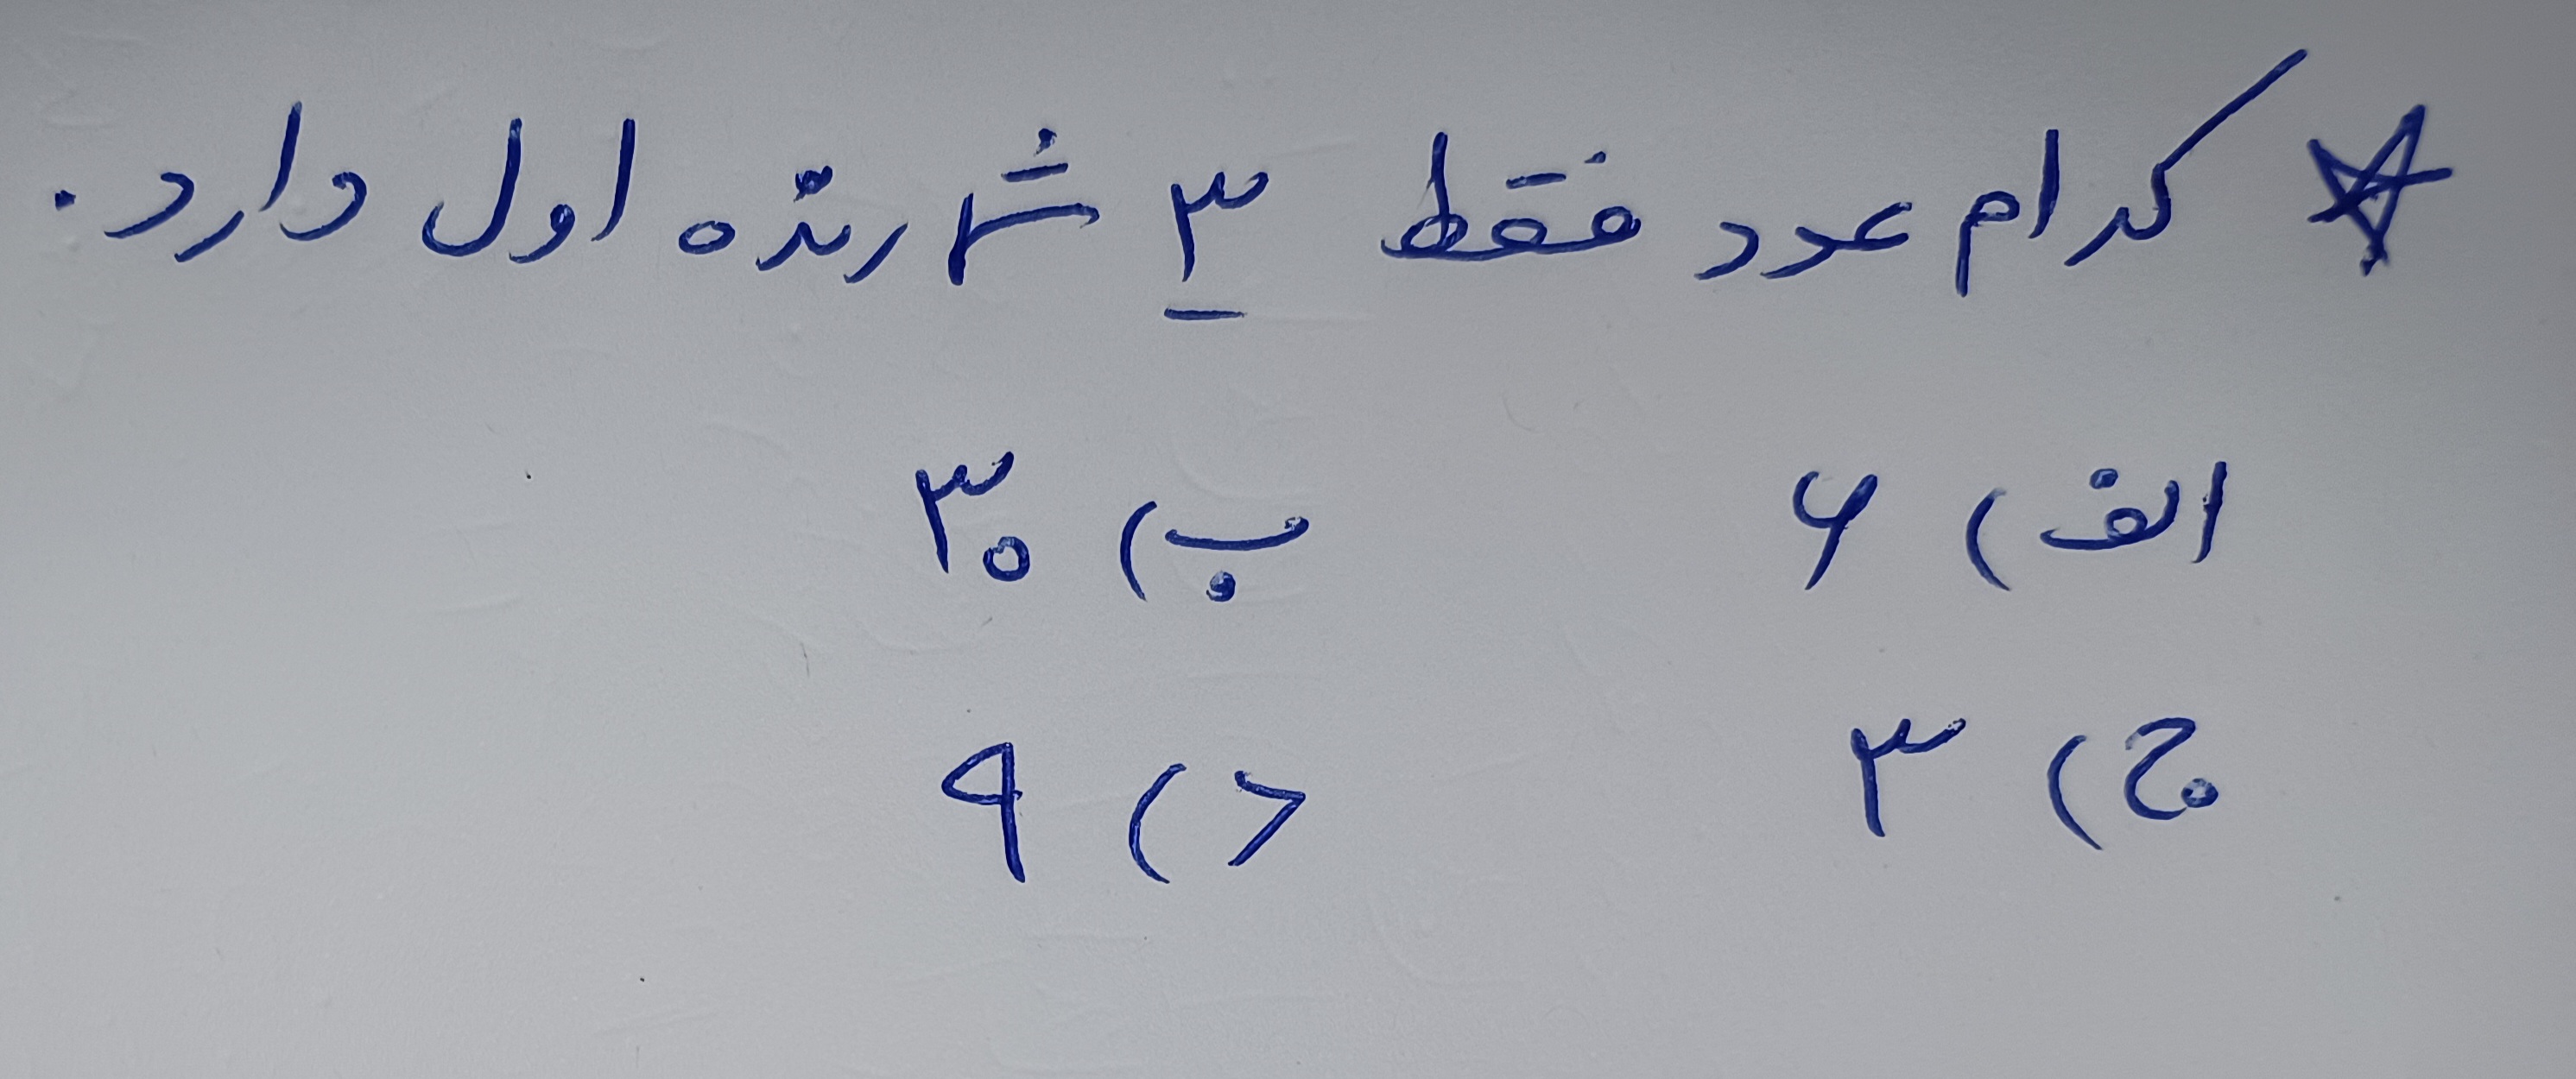 ☆ کدام عدد فقط ۳ شمارنده اول دارد.
الف) ۶ ب) ۳۰
ج) ۳ د) ۹